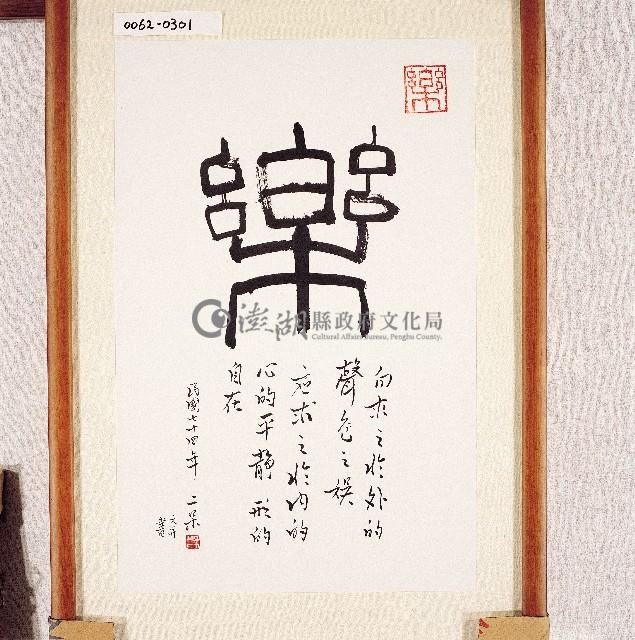 0062-0301
樂
樂
澎湖縣政府文化局
Cultural Affairs Bureau, Penghu County.
向求之於外的
聲色之娛
應求之於內的
心的平靜 形的
自在
民國七十四年 二呆